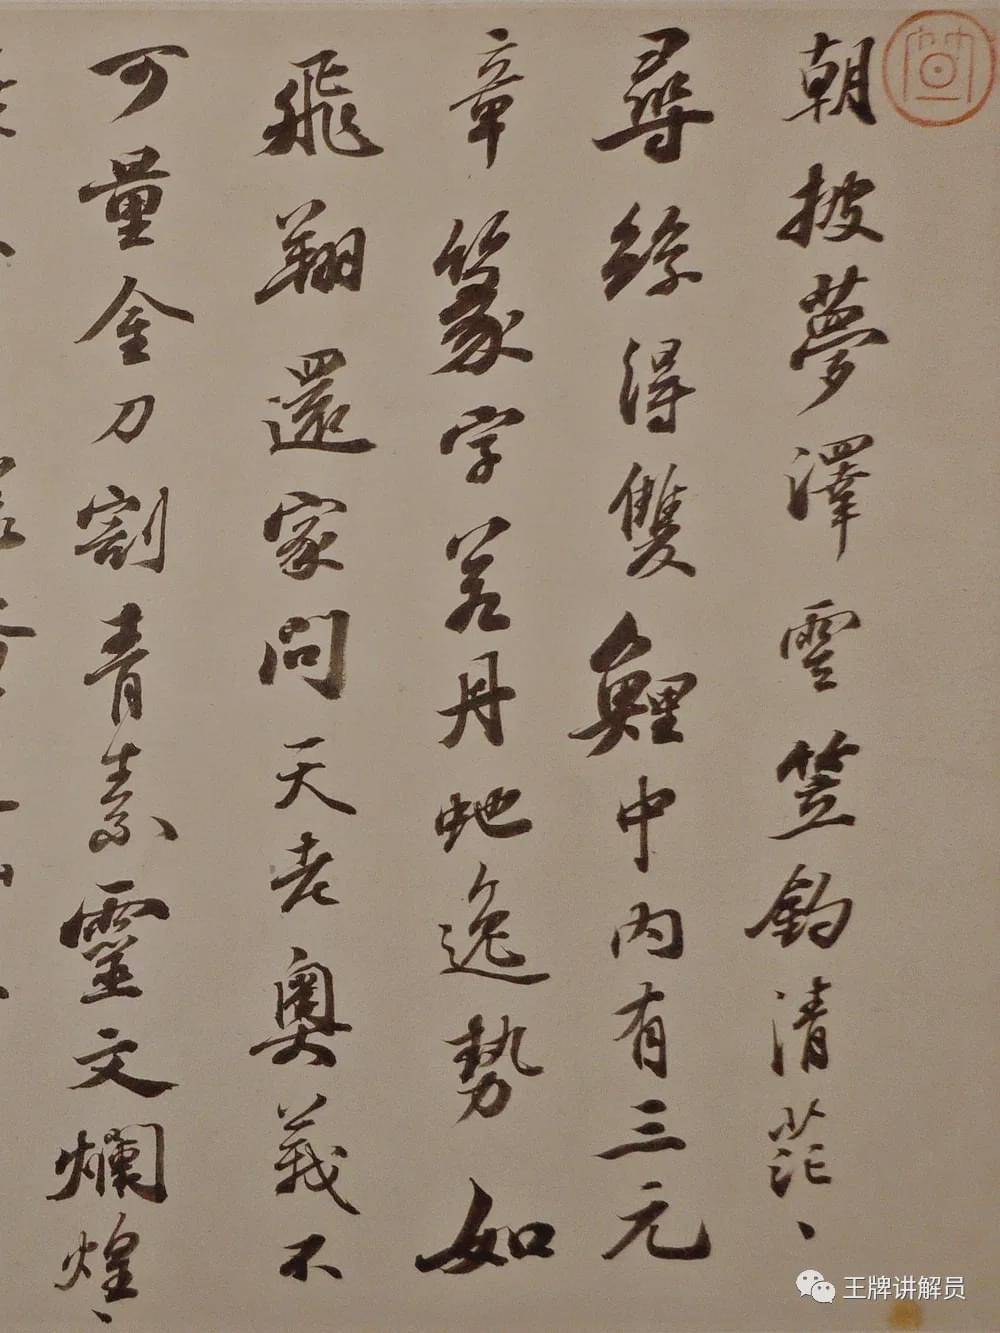 朝披夢澤雲笠釣清茫〻
尋絲得雙鯉中內有三元
章篆字若丹虵逸勢如
飛翔還家問天老奧義不
可量金刀割青素靈文爛煌〻
王牌讲解员